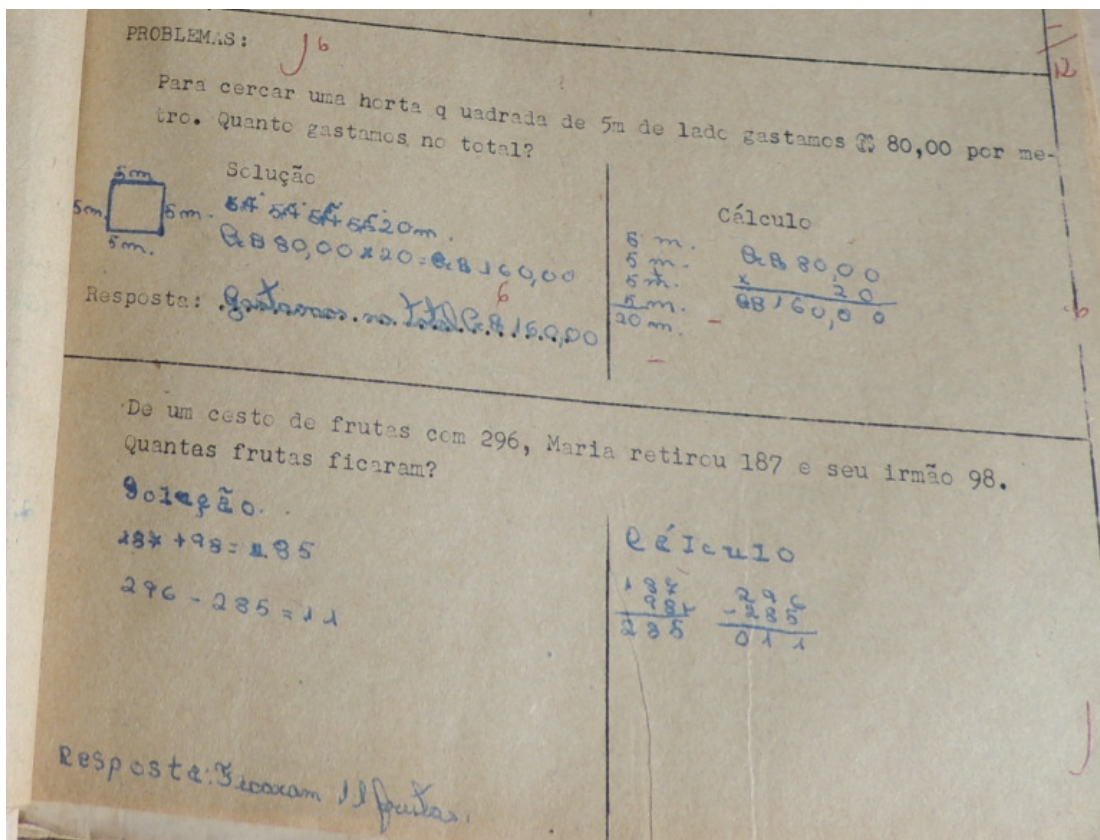 PROBLEMAS:
6
12
Para cercar uma horta q uadrada de 5m de lado gastamos Cr$ 80,00 por me-
tro. Quanto gastamos no total?
Solução
5m
5m. 5m.
5m.
5+ 5+ 5+ 5=20m.
Cr$ 80,00 x 20 = Cr$ 160,00
6
Resposta: Gastamos no total Cr$ 160,00
Cálculo
5 m.
5 m.
5 m.
5 m.
20 m.
Cr$ 80,00
x 20
Cr$ 160,00
6
De um cesto de frutas com 296, Maria retirou 187 e seu irmão 98.
Quantas frutas ficaram?
Solução.
187 + 98 = 285
296 - 285 = 11
Cálculo
187
98+
285
296
- 285
011
Resposta: Ficaram 11 frutas.